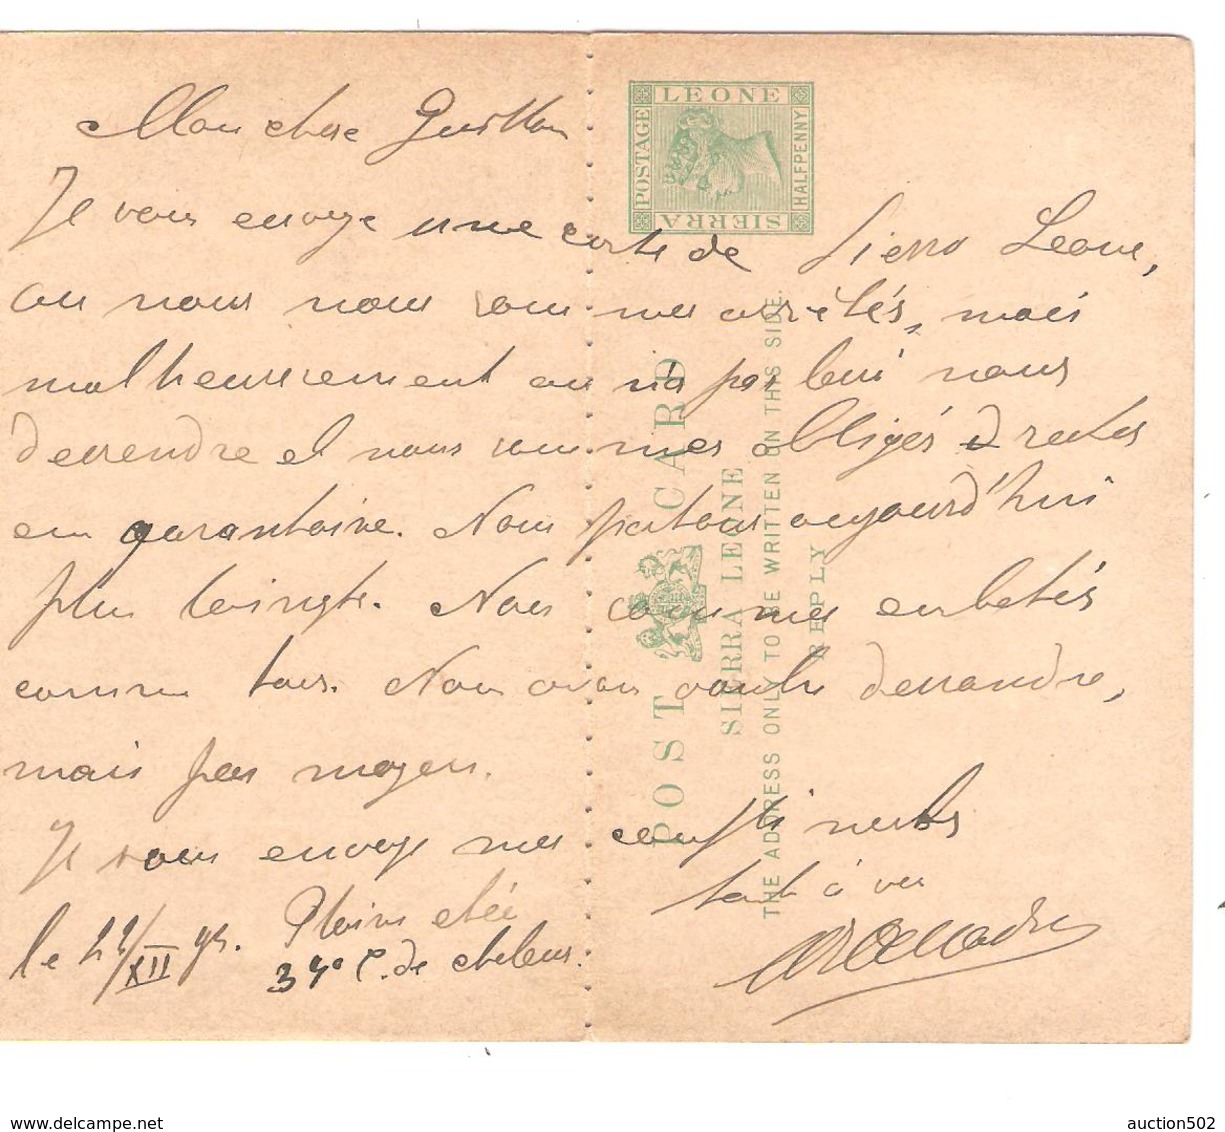 Mon cher
Je vous envoye une carte de Sierra Leone,
ou nous nous sommes arrêtés, mais
malheureusement on n'a pas nous
dessendre et nous sommes obligés d rester
en qarantaine. Nous partons aujourd'hui
plus Nous sommes enbetés
comme tous. Nous avons voulu dessandre,
mais pas moyen.
Je vous envoye mes
tout à vous
le XII
Pleine eté
34° C. de chaleur.
POSTAGE
LEONE
HALFPENNY
SIERRA
POST CARD
SIERRA LEONE
THE ADDRESS ONLY TO BE WRITTEN ON THIS SIDE.
REPLY
auction502